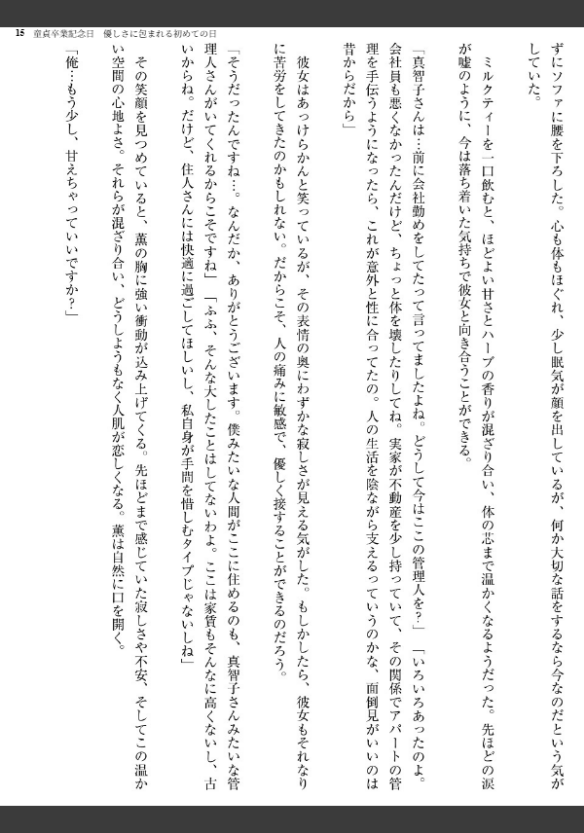 15　童貞卒業記念日　優しさに包まれる初めての日
ずにソファに腰を下ろした。心も体もほぐれ、少し眠気が顔を出しているが、何か大切な話をするなら今なのだという気が
していた。
ミルクティーを一口飲むと、ほどよい甘さとハーブの香りが混ざり合い、体の芯まで温かくなるようだった。先ほどの涙
が嘘のように、今は落ち着いた気持ちで彼女と向き合うことができる。
「真智子さんは…前に会社勤めをしてたって言ってましたよね。どうして今はここの管理人を？」「いろいろあったのよ。
会社員も悪くなかったんだけど、ちょっと体を壊したりしてね。実家が不動産を少し持っていて、その関係でアパートの管
理を手伝うようになったら、これが意外と性に合ってたの。人の生活を陰ながら支えるっていうのかな、面倒見がいいのは
昔からだから」
彼女はあっけらかんと笑っているが、その表情の奥にわずかな寂しさが見える気がした。もしかしたら、彼女もそれなり
に苦労をしてきたのかもしれない。だからこそ、人の痛みに敏感で、優しく接することができるのだろう。
「そうだったんですね…。なんだか、ありがとうございます。僕みたいな人間がここに住めるのも、真智子さんみたいな管
理人さんがいてくれるからこそですね」「ふふ、そんな大したことはしてないわよ。ここは家賃もそんなに高くないし、古
いからね。だけど、住人さんには快適に過ごしてほしいし、私自身が手間を惜しむタイプじゃないしね」
その笑顔を見つめていると、薫の胸に強い衝動が込み上げてくる。先ほどまで感じていた寂しさや不安、そしてこの温か
い空間の心地よさ。それらが混ざり合い、どうしようもなく人肌が恋しくなる。薫は自然に口を開く。
「俺…もう少し、甘えちゃっていいですか？」